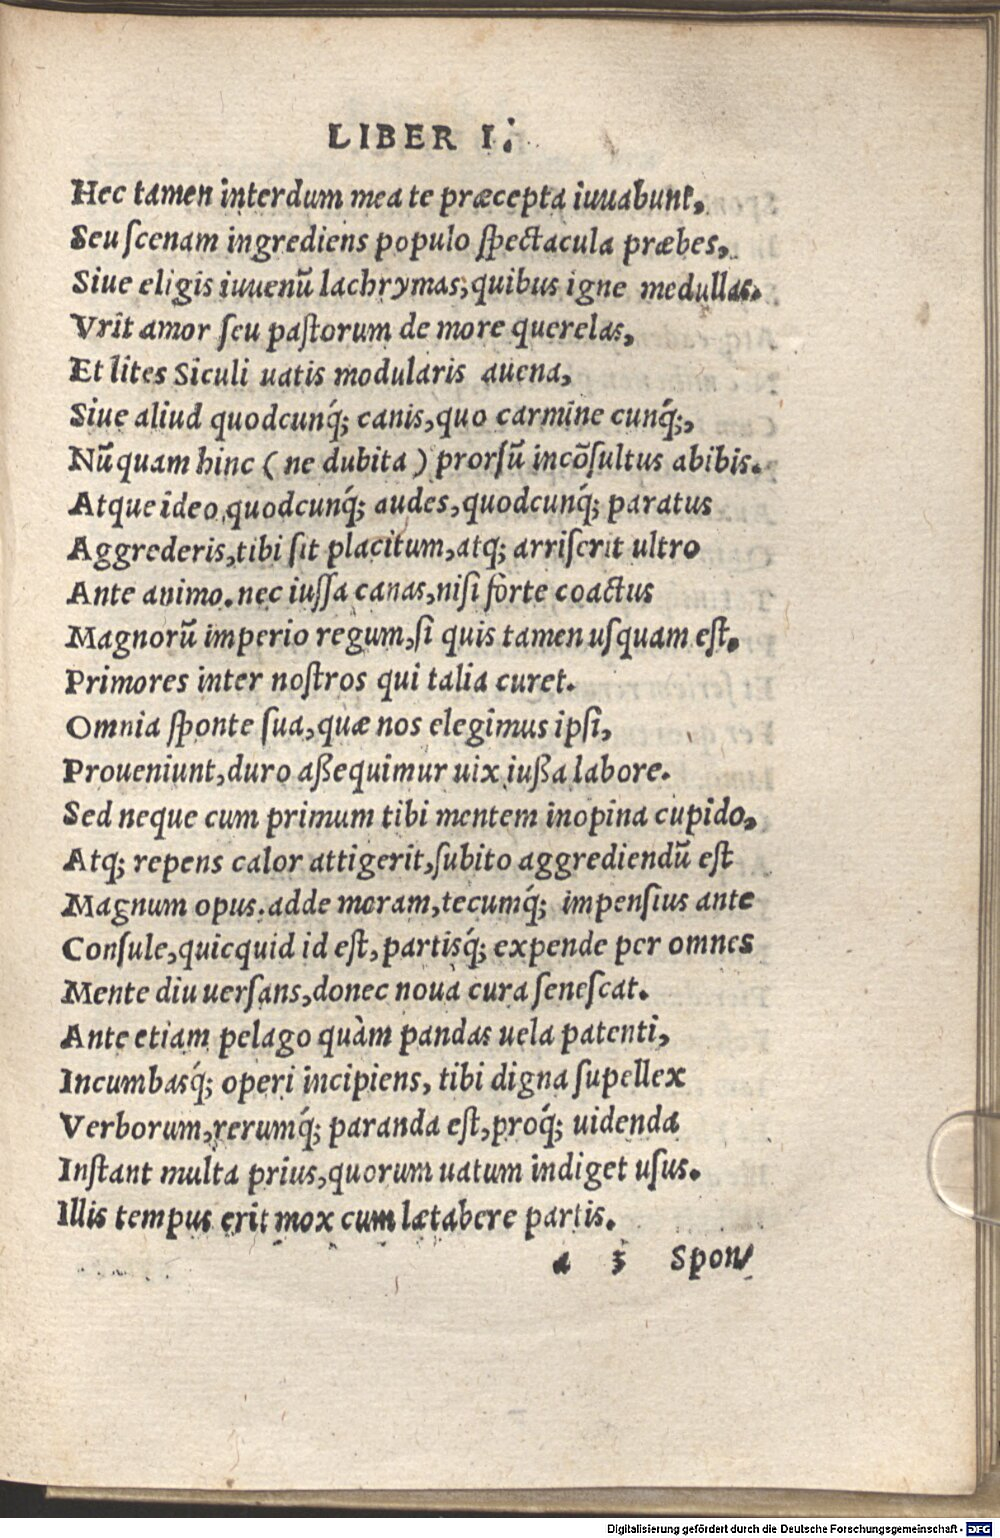 LIBER I.
Hec tamen interdum mea te præcepta iuuabunt,
Seu ſcenam ingrediens populo ſpectacula præbes,
Siue eligis iuuenũ lachrymas, quibus igne medullas.
Vrit amor ſeu paſtorum de more querelas,
Et lites Siculi uatis modularis auena,
Siue aliud quodcunq́; canis, quo carmine cunq́;,
Nũquam hinc ( ne dubita ) prorſũ incõſultus abibis.
Atque ideo quodcunq́; audes, quodcunq́; paratus
Aggrederis, tibi ſit placitum, atq; arriſerit ultro
Ante animo. nec iuſſa canas, niſi forte coactus
Magnorũ imperio regum, ſi quis tamen uſquam eſt.
Primores inter noſtros qui talia curet.
Omnia ſponte ſua, quæ nos elegimus ipſi,
Proueniunt, duro aßequimur uix iußa labore.
Sed neque cum primum tibi mentem inopina cupido,
Atq; repens calor attigerit, ſubito aggrediendũ eſt
Magnum opus. adde moram, tecumq́; impenſius ante
Conſule, quicquid id eſt, partisq́; expende per omnes
Mente diu uerſans, donec noua cura ſeneſcat.
Ante etiam pelago quàm pandas uela patenti,
Incumbasq́; operi incipiens, tibi digna ſupellex
Verborum, rerumq́; paranda eſt, proq́; uidenda
Inſtant multa prius, quorum uatum indiget uſus.
Illis tempus erit mox cum lætabere partis.
a 3 Spon/
Digitalisierung gefördert durch die Deutsche Forschungsgemeinschaft - DFG